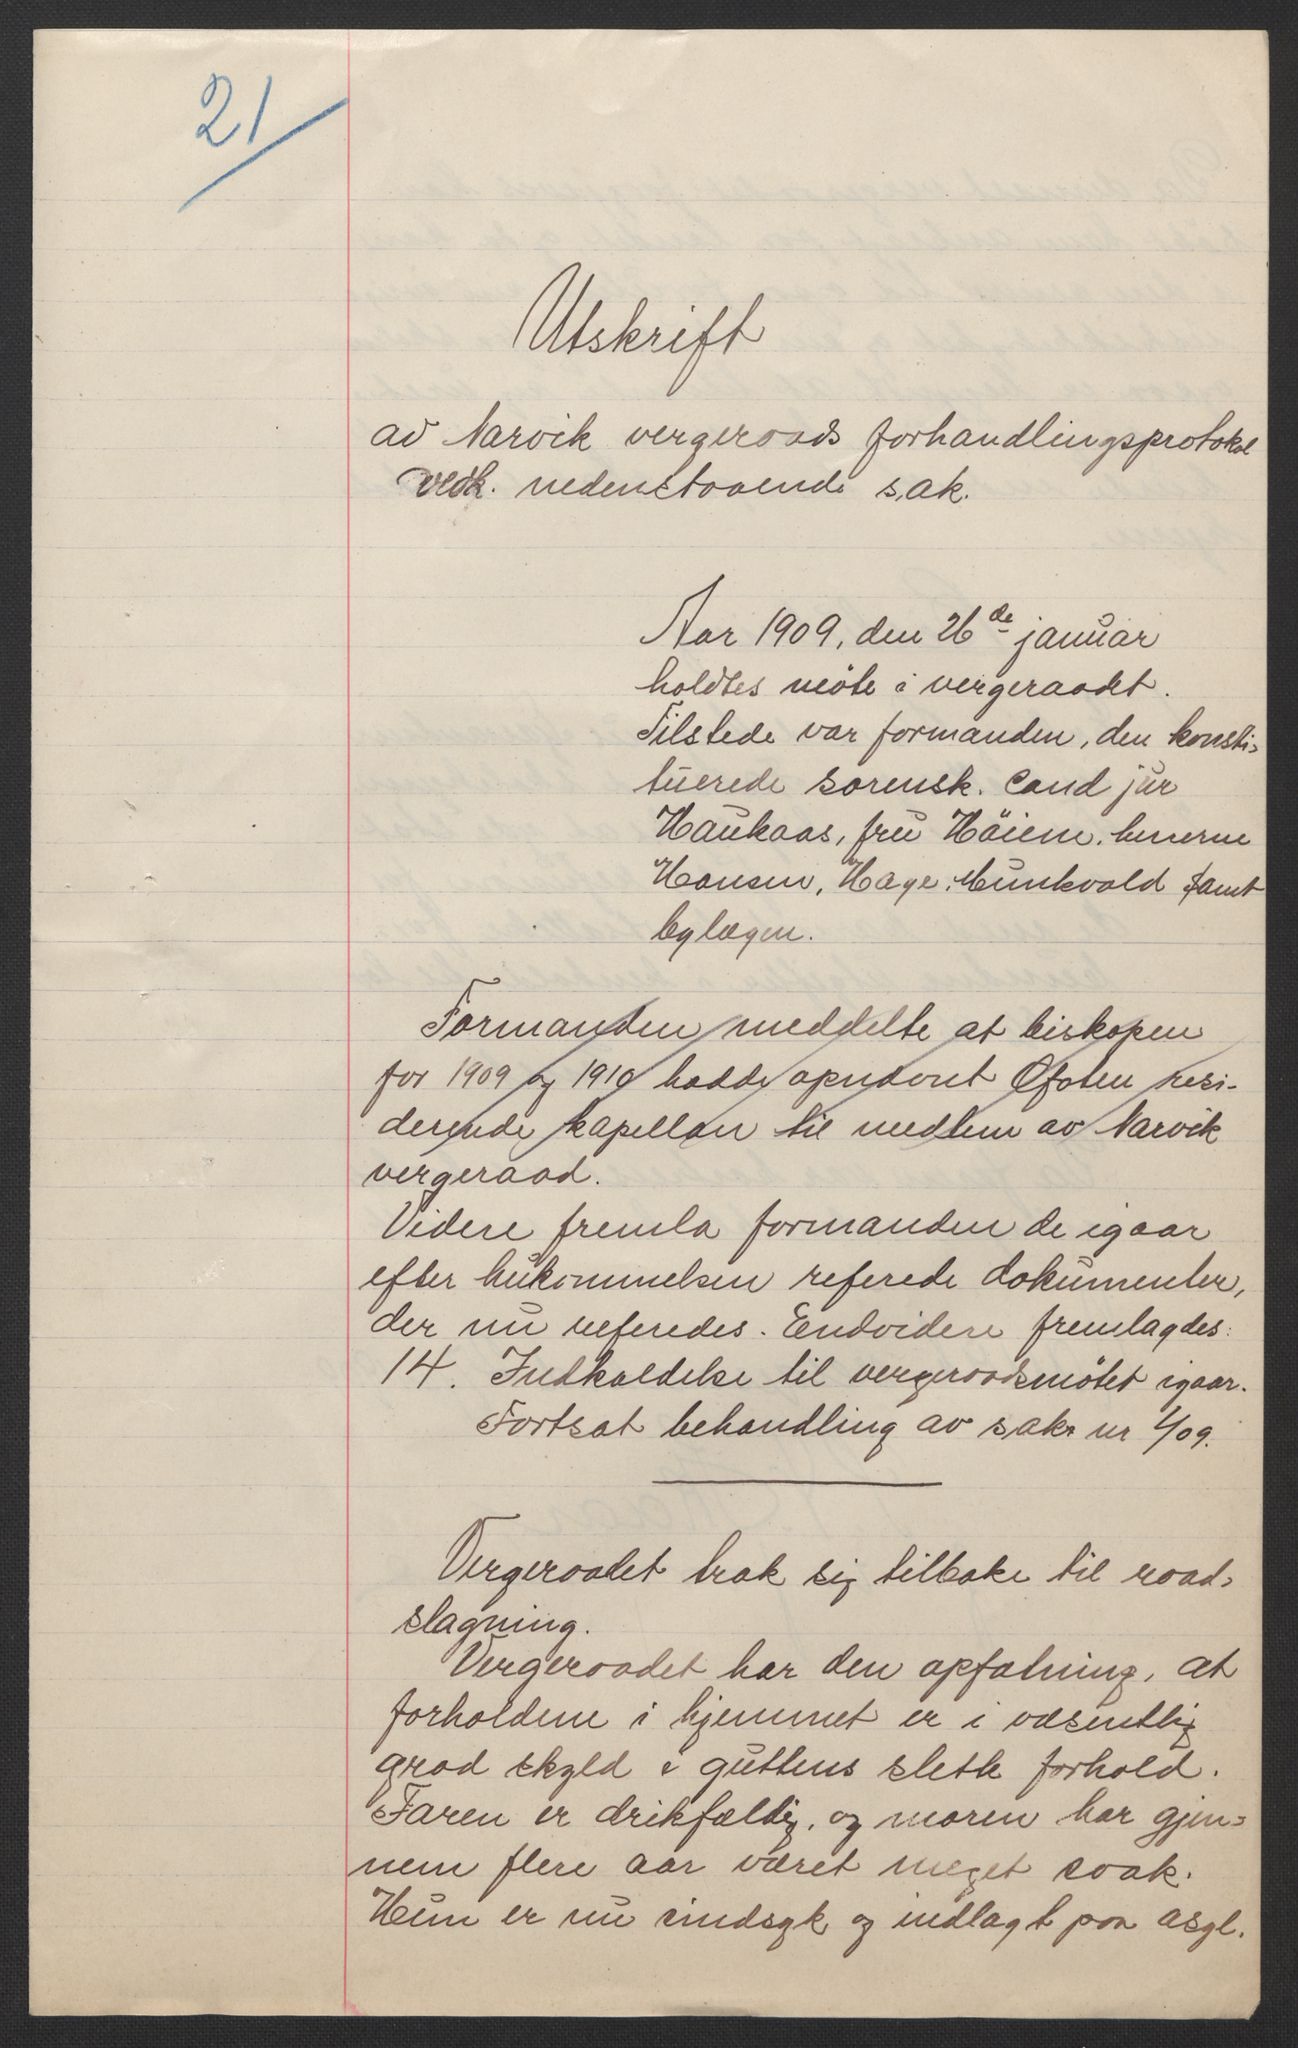 21
Utskrift
av Narvik vergeraads forhandlingsprotokol
vedk. nedenstaaende sak.
Aar 1909, den 26de januar
holdtes møte i vergeraadet.
Tilstede var formanden, den konsti-
tuerede sorensk. cand jur
Haukaas, fru Höiem, herrerne
Hansen, Hage, Munkvold samt
bylægen.
Formanden meddelte at biskopen
for 1909 og 1910 hadde opnævnt Ofoten resi-
derende kapellan til medlem av Narvik
vergeraad.
Videre fremla formanden de igaar
efter hukommelsen referede dokumenter,
der nu referedes. Endvidere fremlagdes:
14. Indkaldelse til vergeraadsmötet igaar.
Fortsat behandling av sak nr 1/09.
Vergeraadet trak sig tilbake til raad-
slagning.
Vergeraadet har den opfatning, at
forholdene i hjemmet er i væsentlig
grad skyld i guttens slette forhold.
Faren er drikfældig, og moren har gjen-
nem flere aar været meget svak.
Hun er nu sindsyk og indlagt paa asyl.